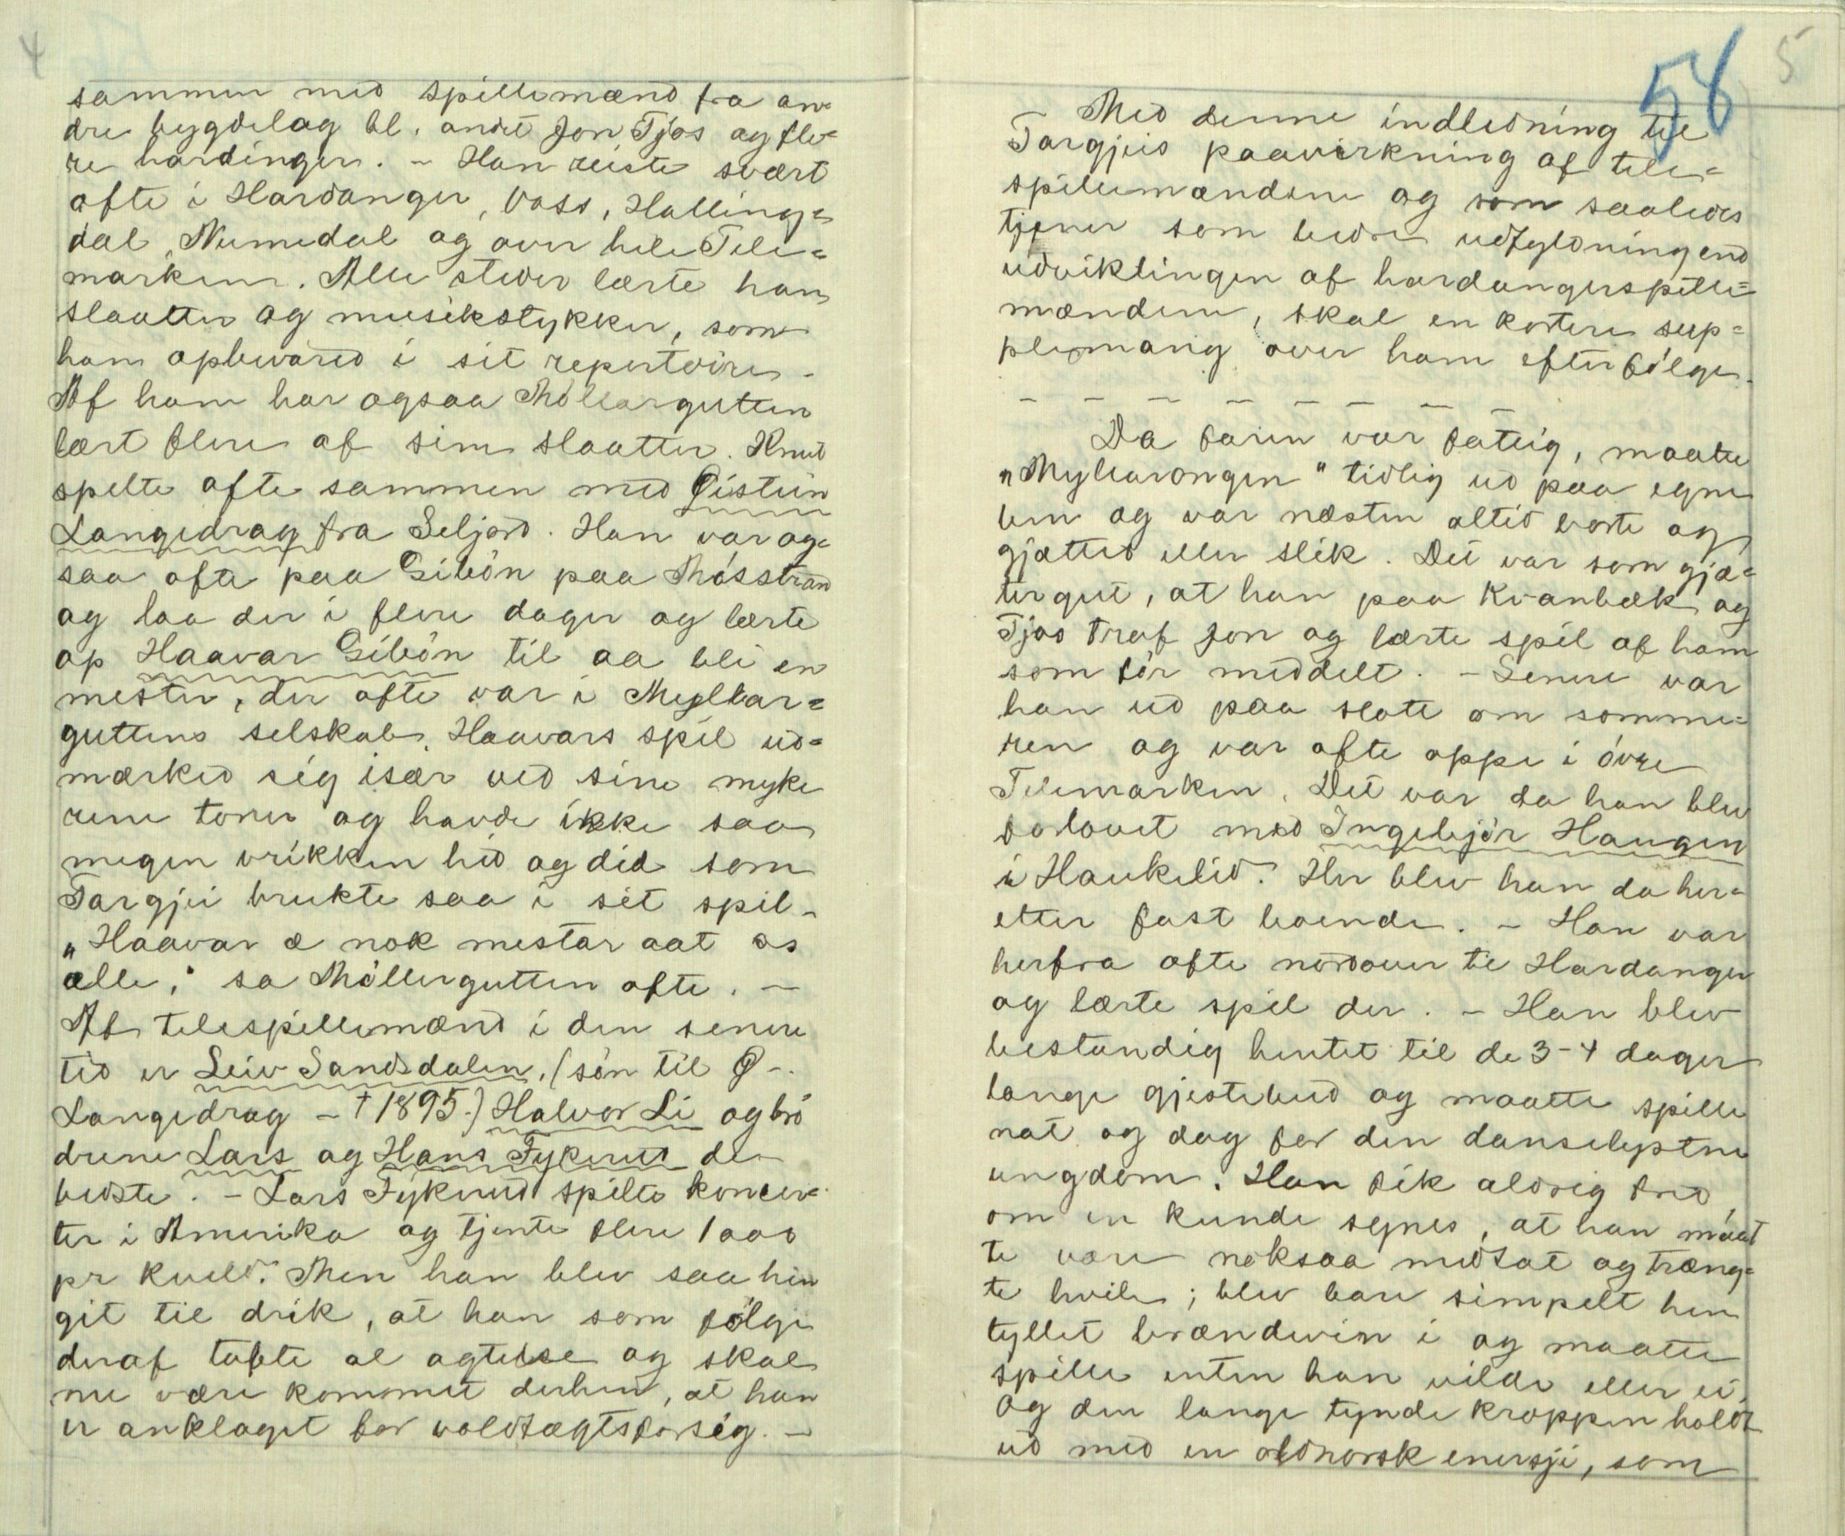 4
sammen med spillemænd fra an-
dre bygdelag bl. andet Jon Tjos og fle-
re hardinger. – Han reiste svært
ofte i Hardanger, Voss, Halling-
dal, Numedal og over hele Tele-
marken. Alle steder lærte han
slaatter og musikstykker, som
han opbevared i sit repertoire.
Af ham har ogsaa Møllarguten
lært flere af sine slaatter. Knut
spelte ofte sammen med Øistein
Langedrag fra Seljord. Han var og-
saa ofte paa Gibøn paa Møsstrand
og laa der i flere dager og lærte
op Haavar Gibøn til aa bli en
mester, der ofte var i Myllar-
guttens selskab. Haavars spil ud-
mærked sig især ved sine myke
rene toner og havde ikke saa
megen vrikken hid og did som
Targjei brukte saa i sit spil.
„Haavar æ nok mestar aat os
alle," sa Møllergutten ofte. –
Af telespillemænd i den senere
tid er Leiv Sandsdalen, (søn til Ø–.
Langedrag – † 1895.) Halvor Li og brø
drene Lars og Hans Fykerud de
bedste. – Lars Fykerud spilte koncer-
ter i Amerika og tjente flere 1000
pr kveld. Men han blev saa hen
git til drik, at han som følge
deraf tabte al agtelse og skal
nu være kommet derhen, at han
er anklaget for voldtægtsforsøg. –
58
5
– Med denne indledning til
Targjeis paavirkning af tele-
spillemændene og som saaledes
tjener som bedre udfyldning end
udviklingen af hardangerspille-
mændene, skal en kortere sup-
plemang over ham efterfølge.
– – – – – – – –
Da faren var fattig, maatte
„Myllarongen" tidlig ud paa egne
ben og var næsten altid borte og
gjætted eller slik. Det var som gjæ-
tergut, at han paa Kvanbæk og
Tjos traf Jon og lærte spil af ham
som før meddelt. – Senere var
han ud paa slote om somme-
ren og var ofte oppe i øvre
Telemarken. Det var da han blev
forlovet med Ingebjør Haugen
i Haukelid. Her blev han da her-
etter fast boende. – Han var
herfra ofte nordover til Hardanger
og lærte spil der. – Han blev
bestandig hentet til de 3–4 dager
lange gjestebud og maatte spille
nat og dag for den danselystne
ungdom. Han fik aldrig fred
om en kunde synes, at han maat
te være noksaa medtat og træng-
te hvile; blev bare simpelt hen
tyllet brændevin i og maatte
spille enten han vilde eller ei.
Og den lange tynde kroppen holdt
ud med en oldnorsk energji, som